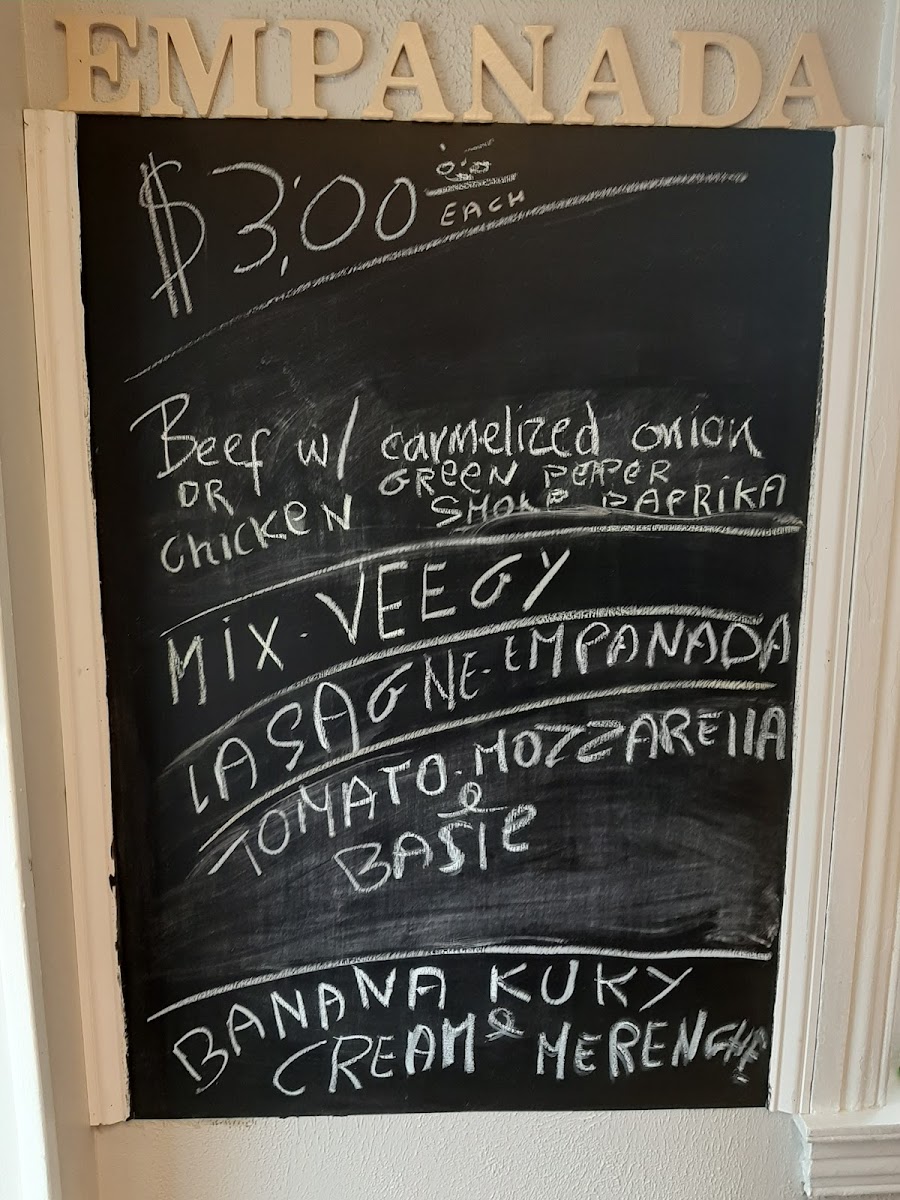 EMPANADA
$3,00
EACH
Beef w/ carmelized onion
OR GREEN PEPPER
CHICKEN SMOKE PAPRIKA
MIX - VEEGY
LASAGNE - EMPANADA
TOMATO - MOZZARELLA
&
BASIL
BANANA KUKY
CREAM & MERENGHE